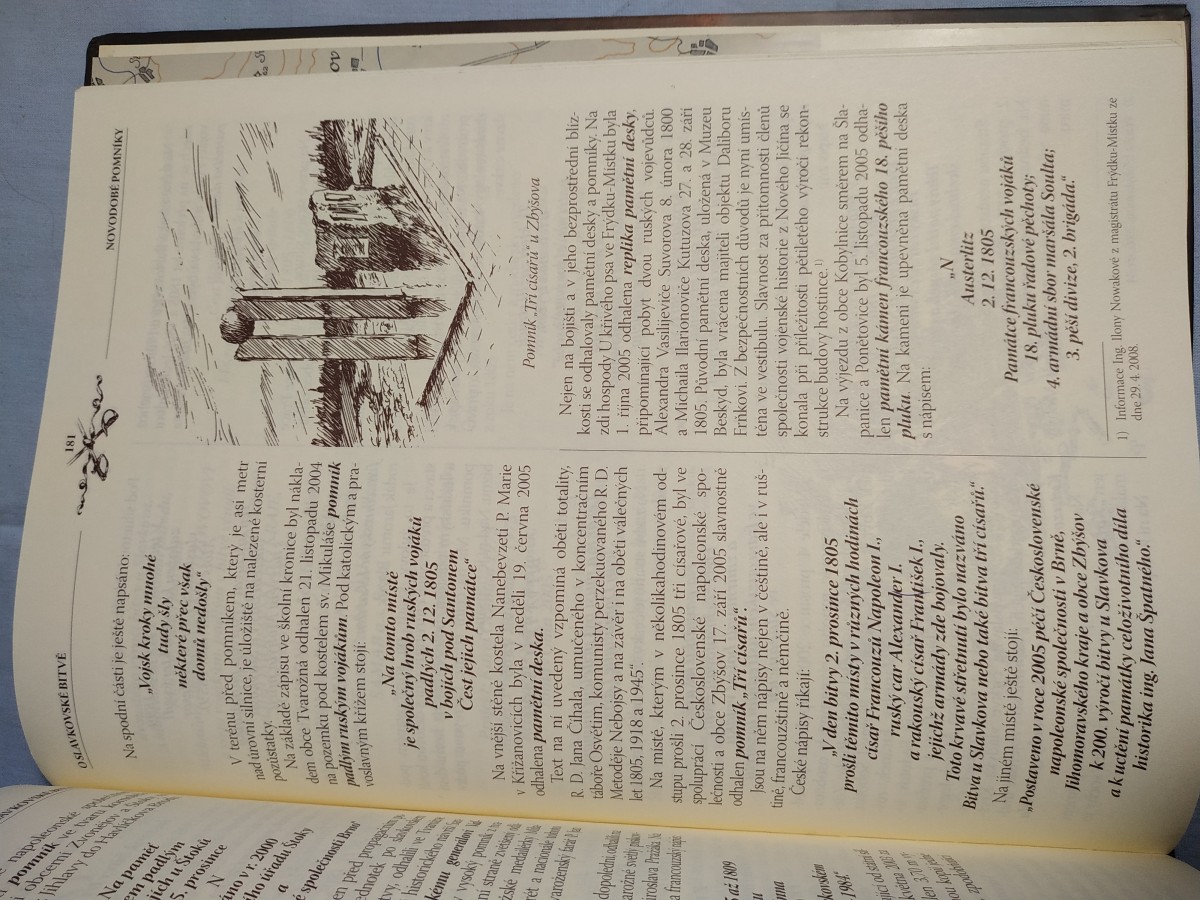 napoleonské
pomník
obcemi Zvonějov a
Jihlavy do Havlíčkova Brod
„Na paměť
em padlým
jících u Štoků
5. prosince
N
áno v r. 2000
ího úřadu Štoky
a
é společnosti Brno“
OSLAVKOVSKÉ BITVĚ
181
NOVODOBÉ POMNÍKY
Na spodní části je ještě napsáno:
„Vojsk kroky mnohé
tudy šly
některé přec však
domů nedošly“
V terénu před pomníkem, který je asi metr
nad úrovní silnice, je uložiště na nalezené kosterní
pozůstatky.
Na základě zápisu ve školní kronice byl nákla-
dem obce Tvarožná odhalen 21. listopadu 2004
na pozemku pod kostelem sv. Mikuláše pomník
padlým ruským vojákům. Pod katolickým a pra-
voslavným křížem stojí:
„Na tomto místě
je společný hrob ruských vojáků
padlých 2. 12. 1805
v bojích pod Santonem
Čest jejich památce“
Na vnější stěně kostela Nanebevzetí P. Marie
v Křižanovicích byla v neděli 19. června 2005
odhalena pamětní deska.
Text na ní uvedený vzpomíná obětí totality,
R. D. Jana Číhala, umučeného v koncentračním
táboře Osvětim, komunisty perzekuovaného R. D.
Metoděje Nebojsy a na závěr i na oběti válečných
let 1805, 1918 a 1945“.
Na místě, kterým v několikahodinovém od-
stupu prošli 2. prosince 1805 tři císařové, byl ve
spolupráci Československé napoleonské spo-
lečnosti a obce Zbýšov 17. září 2005 slavnostně
odhalen pomník „Tří císařů“.
Jsou na něm nápisy nejen v češtině, ale i v ruš-
tině, francouzštině a němčině.
České nápisy říkají:
„V den bitvy 2. prosince 1805
prošli těmito místy v různých hodinách
císař Francouzů Napoleon I.,
ruský car Alexander I.
a rakouský císař František I.,
jejichž armády zde bojovaly.
Toto krvavé střetnutí bylo nazváno
Bitva u Slavkova nebo také bitva tří císařů.“
Na jiném místě ještě stojí:
„Postaveno v roce 2005 péčí Československé
napoleonské společnosti v Brně,
Jihomoravského kraje a obce Zbýšov
k 200. výročí bitvy u Slavkova
a k uctění památky celoživotního díla
historika ing. Jana Špatného.“
Pomník „Tří císařů“ u Zbýšova
Nejen na bojišti a v jeho bezprostřední blíz-
kosti se odhalovaly pamětní desky a pomníky. Na
zdi hospody U křivého psa ve Frýdku-Místku byla
1. října 2005 odhalena replika pamětní desky,
připomínající pobyt dvou ruských vojevůdců.
Alexandra Vasilijeviče Suvorova 8. února 1800
a Michaila Ilarionoviče Kutuzova 27. a 28. září
1805. Původní pamětní deska, uložená v Muzeu
Beskyd, byla vrácena majiteli objektu Daliboru
Frňkovi. Z bezpečnostních důvodů je nyní umís-
těna ve vestibulu. Slavnost za přítomnosti členů
společnosti vojenské historie z Nového Jičína se
konala při příležitosti pětiletého výročí rekon-
strukce budovy hostince.1)
Na výjezdu z obce Kobylnice směrem na Šla-
panice a Ponětovice byl 5. listopadu 2005 odha-
len pamětní kámen francouzského 18. pěšího
pluku. Na kameni je upevněna pamětní deska
s nápisem:
„N
Austerlitz
2. 12. 1805
Památce francouzských vojáků
18. pluku řadové pěchoty;
4. armádní sbor maršála Soulta;
3. pěší divize, 2. brigáda.“
1) Informace Ing. Ilony Nowakové z magistrátu Frýdku-Místku ze
dne 29. 4. 2008.